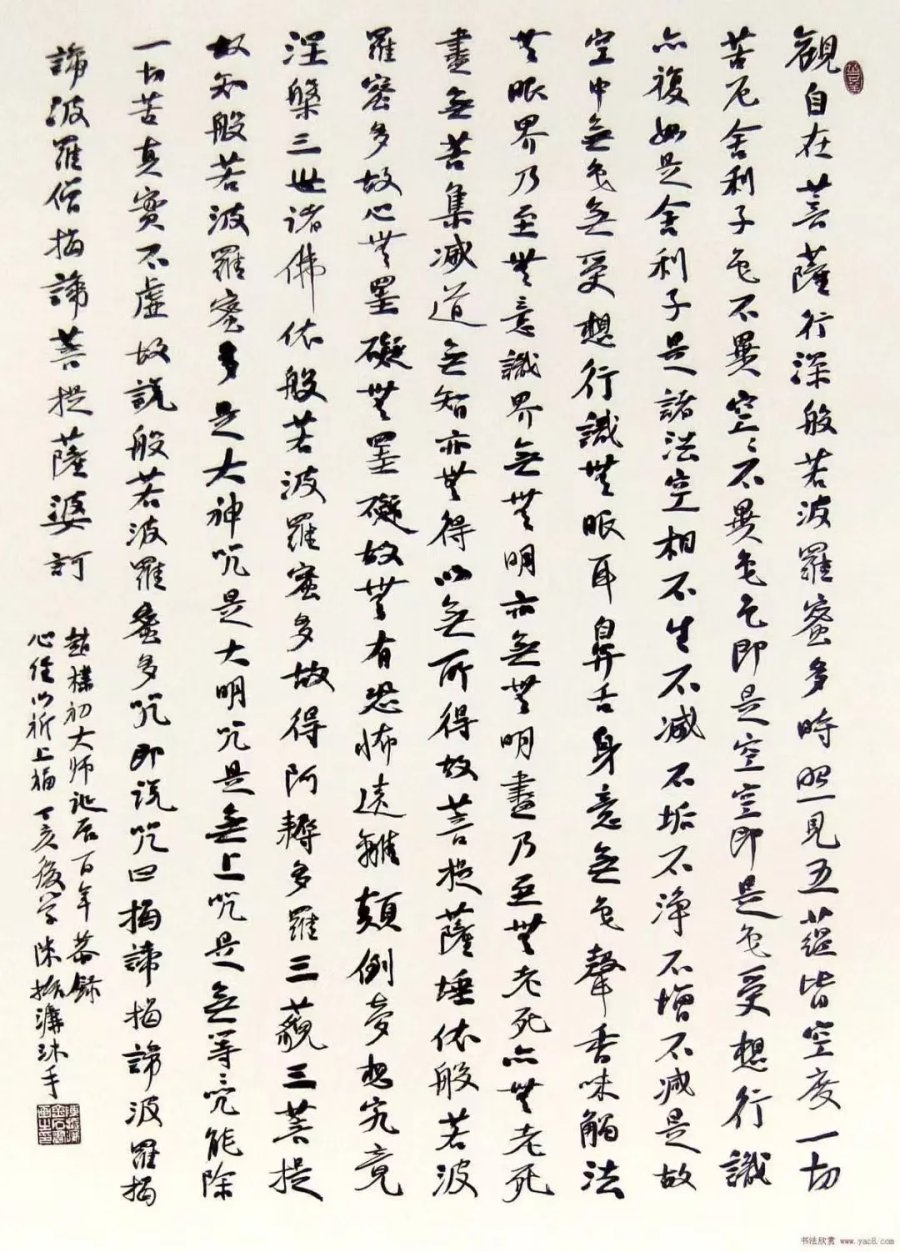 觀自在菩薩行深般若波羅蜜多時照見五蘊皆空度一切
苦厄舍利子色不異空〻不異色色即是空空即是色受想行識
亦復如是舍利子是諸法空相不生不滅不垢不淨不增不減是故
空中無色無受想行識無眼耳鼻舌身意無色聲香味觸法
無眼界乃至無意識界無無明亦無無明盡乃至無老死亦無老死
盡無苦集滅道無智亦無得以無所得故菩提薩埵依般若波
羅蜜多故心無罣礙無罣礙故無有恐怖遠離顛倒夢想究竟
涅槃三世諸佛依般若波羅蜜多故得阿耨多羅三藐三菩提
故知般若波羅蜜多是大神咒是大明咒是無上咒是無等〻咒能除
一切苦真實不虛故說般若波羅蜜多咒即說咒曰揭諦揭諦波羅揭
諦波羅僧揭諦菩提薩婆訶
趙樸初大师誕辰百年恭錄
心經以祈上福丁亥後学陳振濂沐手
书法欣赏 www.yac8.com